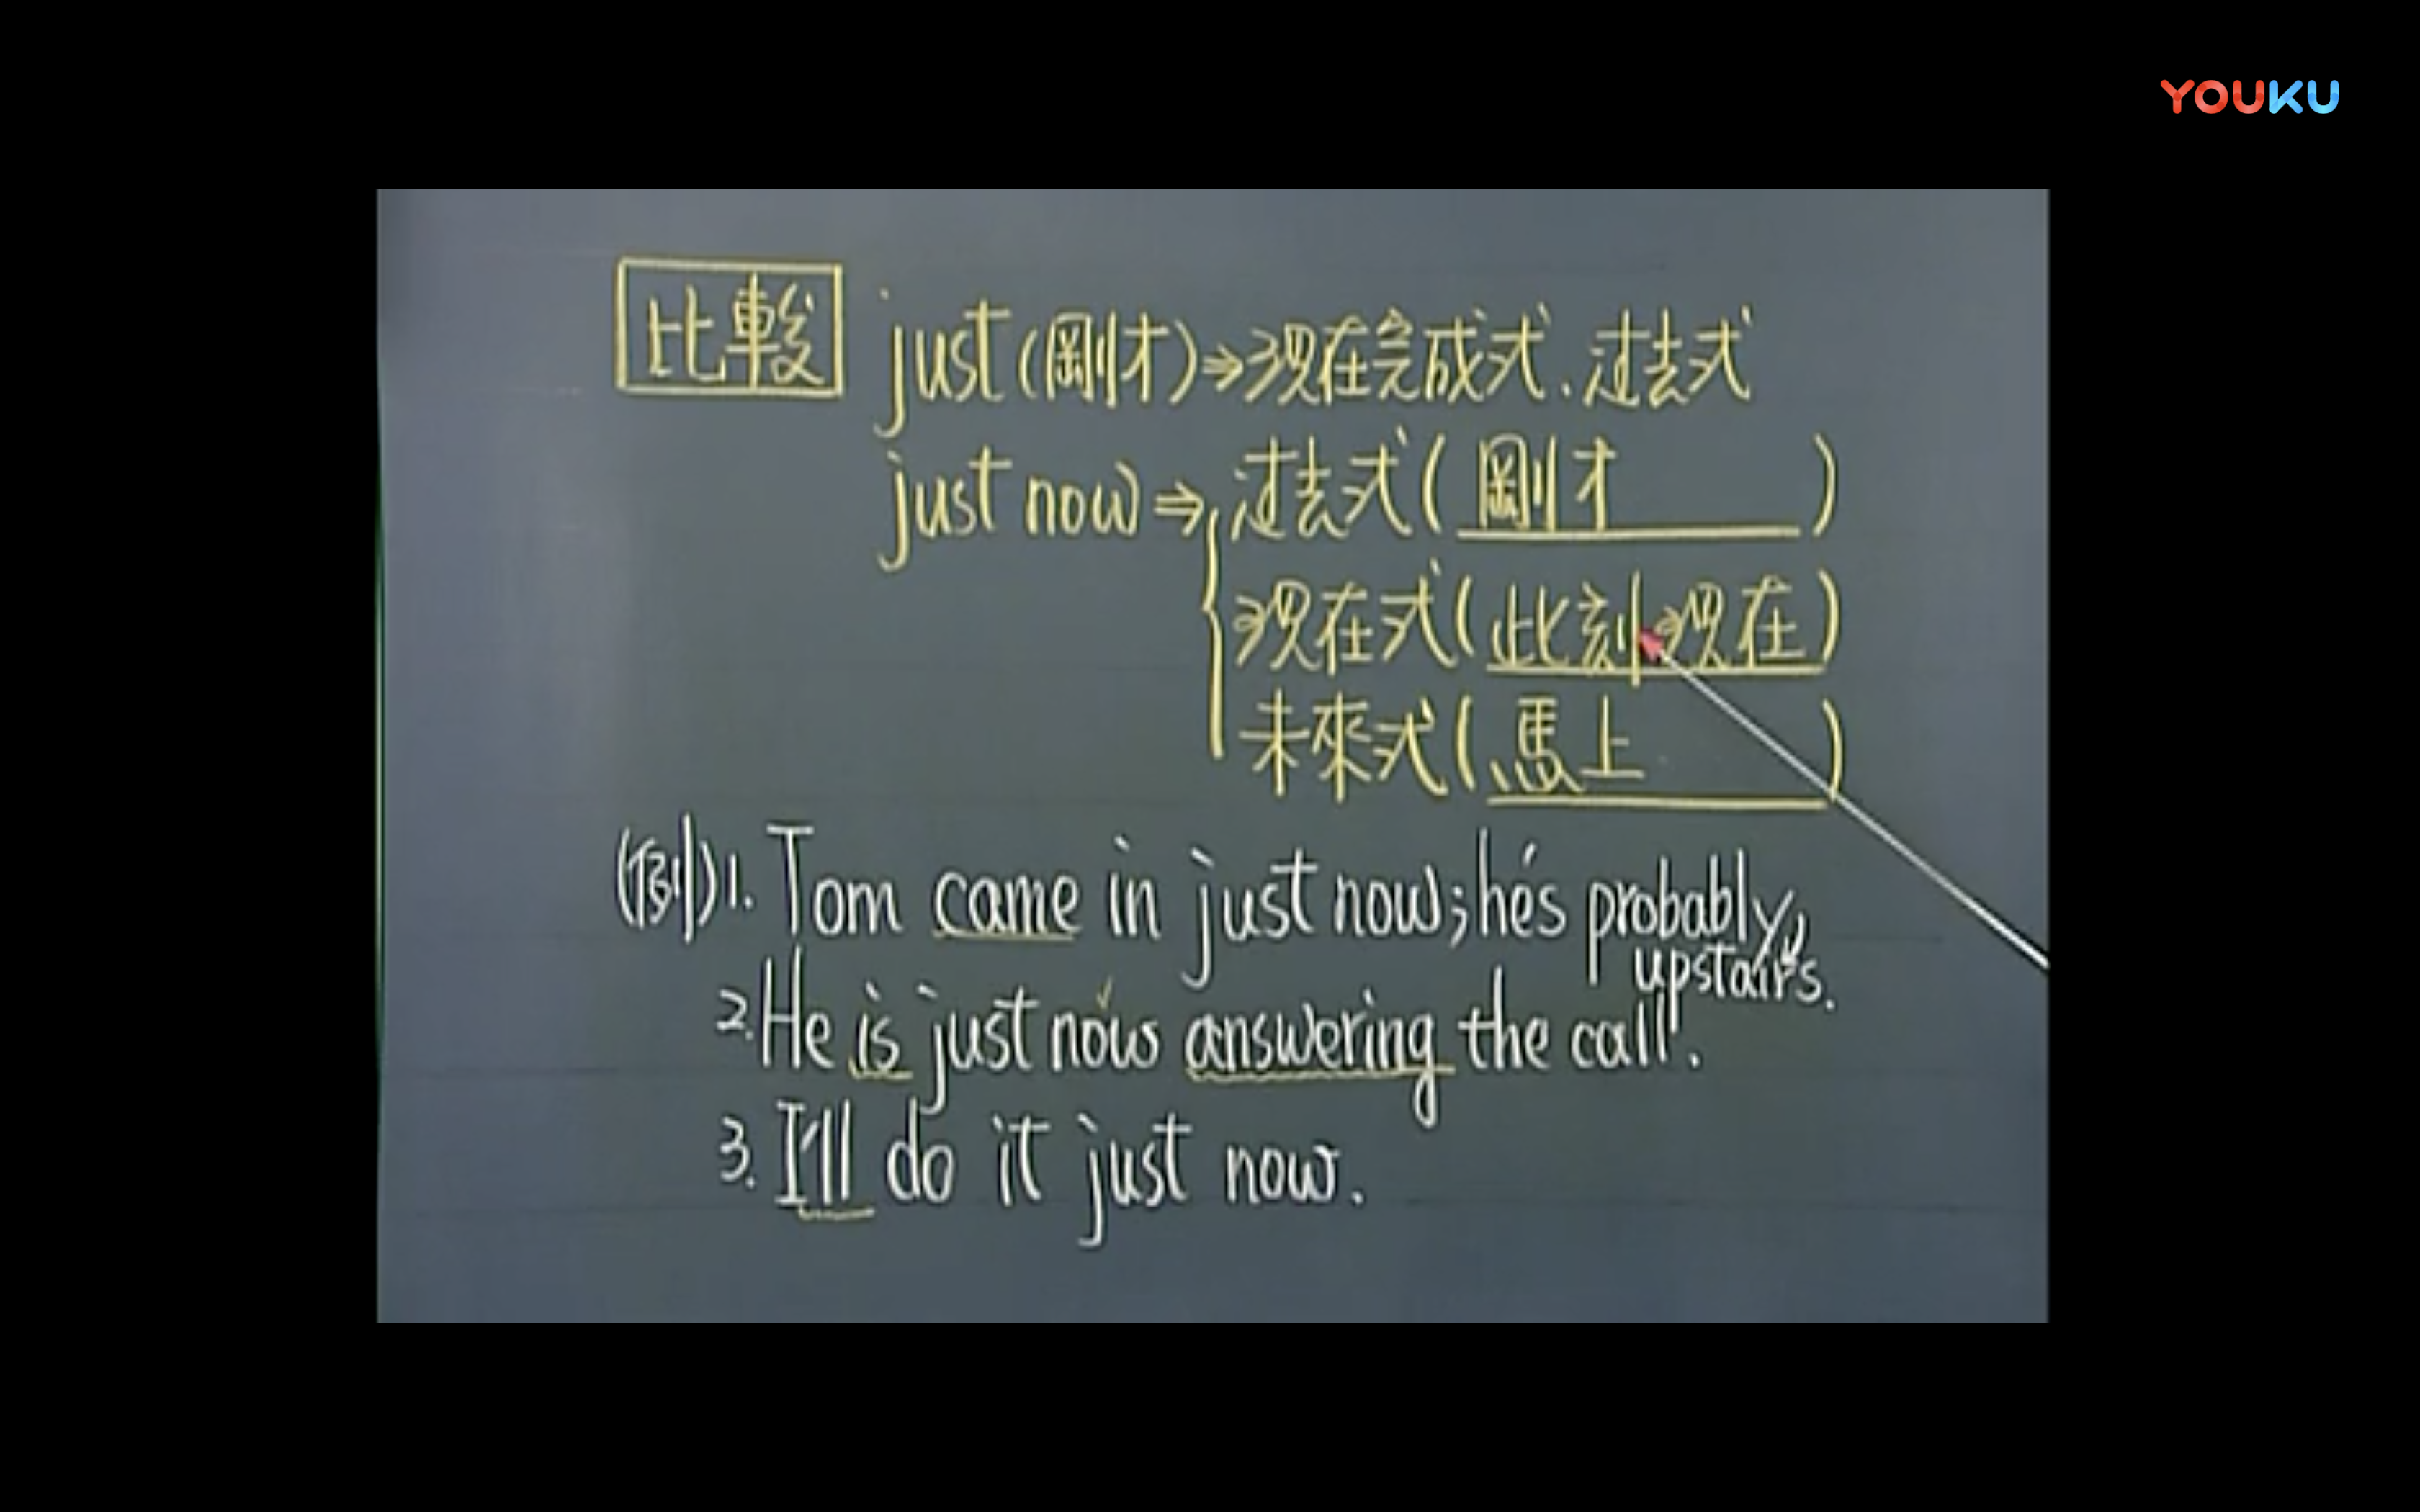 YOUKU
比較 just(剛才)⇒現在完成式.过去式
just now⇒过去式(剛才)
現在式(此刻現在)
未來式(馬上)
(例)1. Tom came in just now; he's probably
upstairs.
2. He is just now answering the call.
3. I'll do it just now.